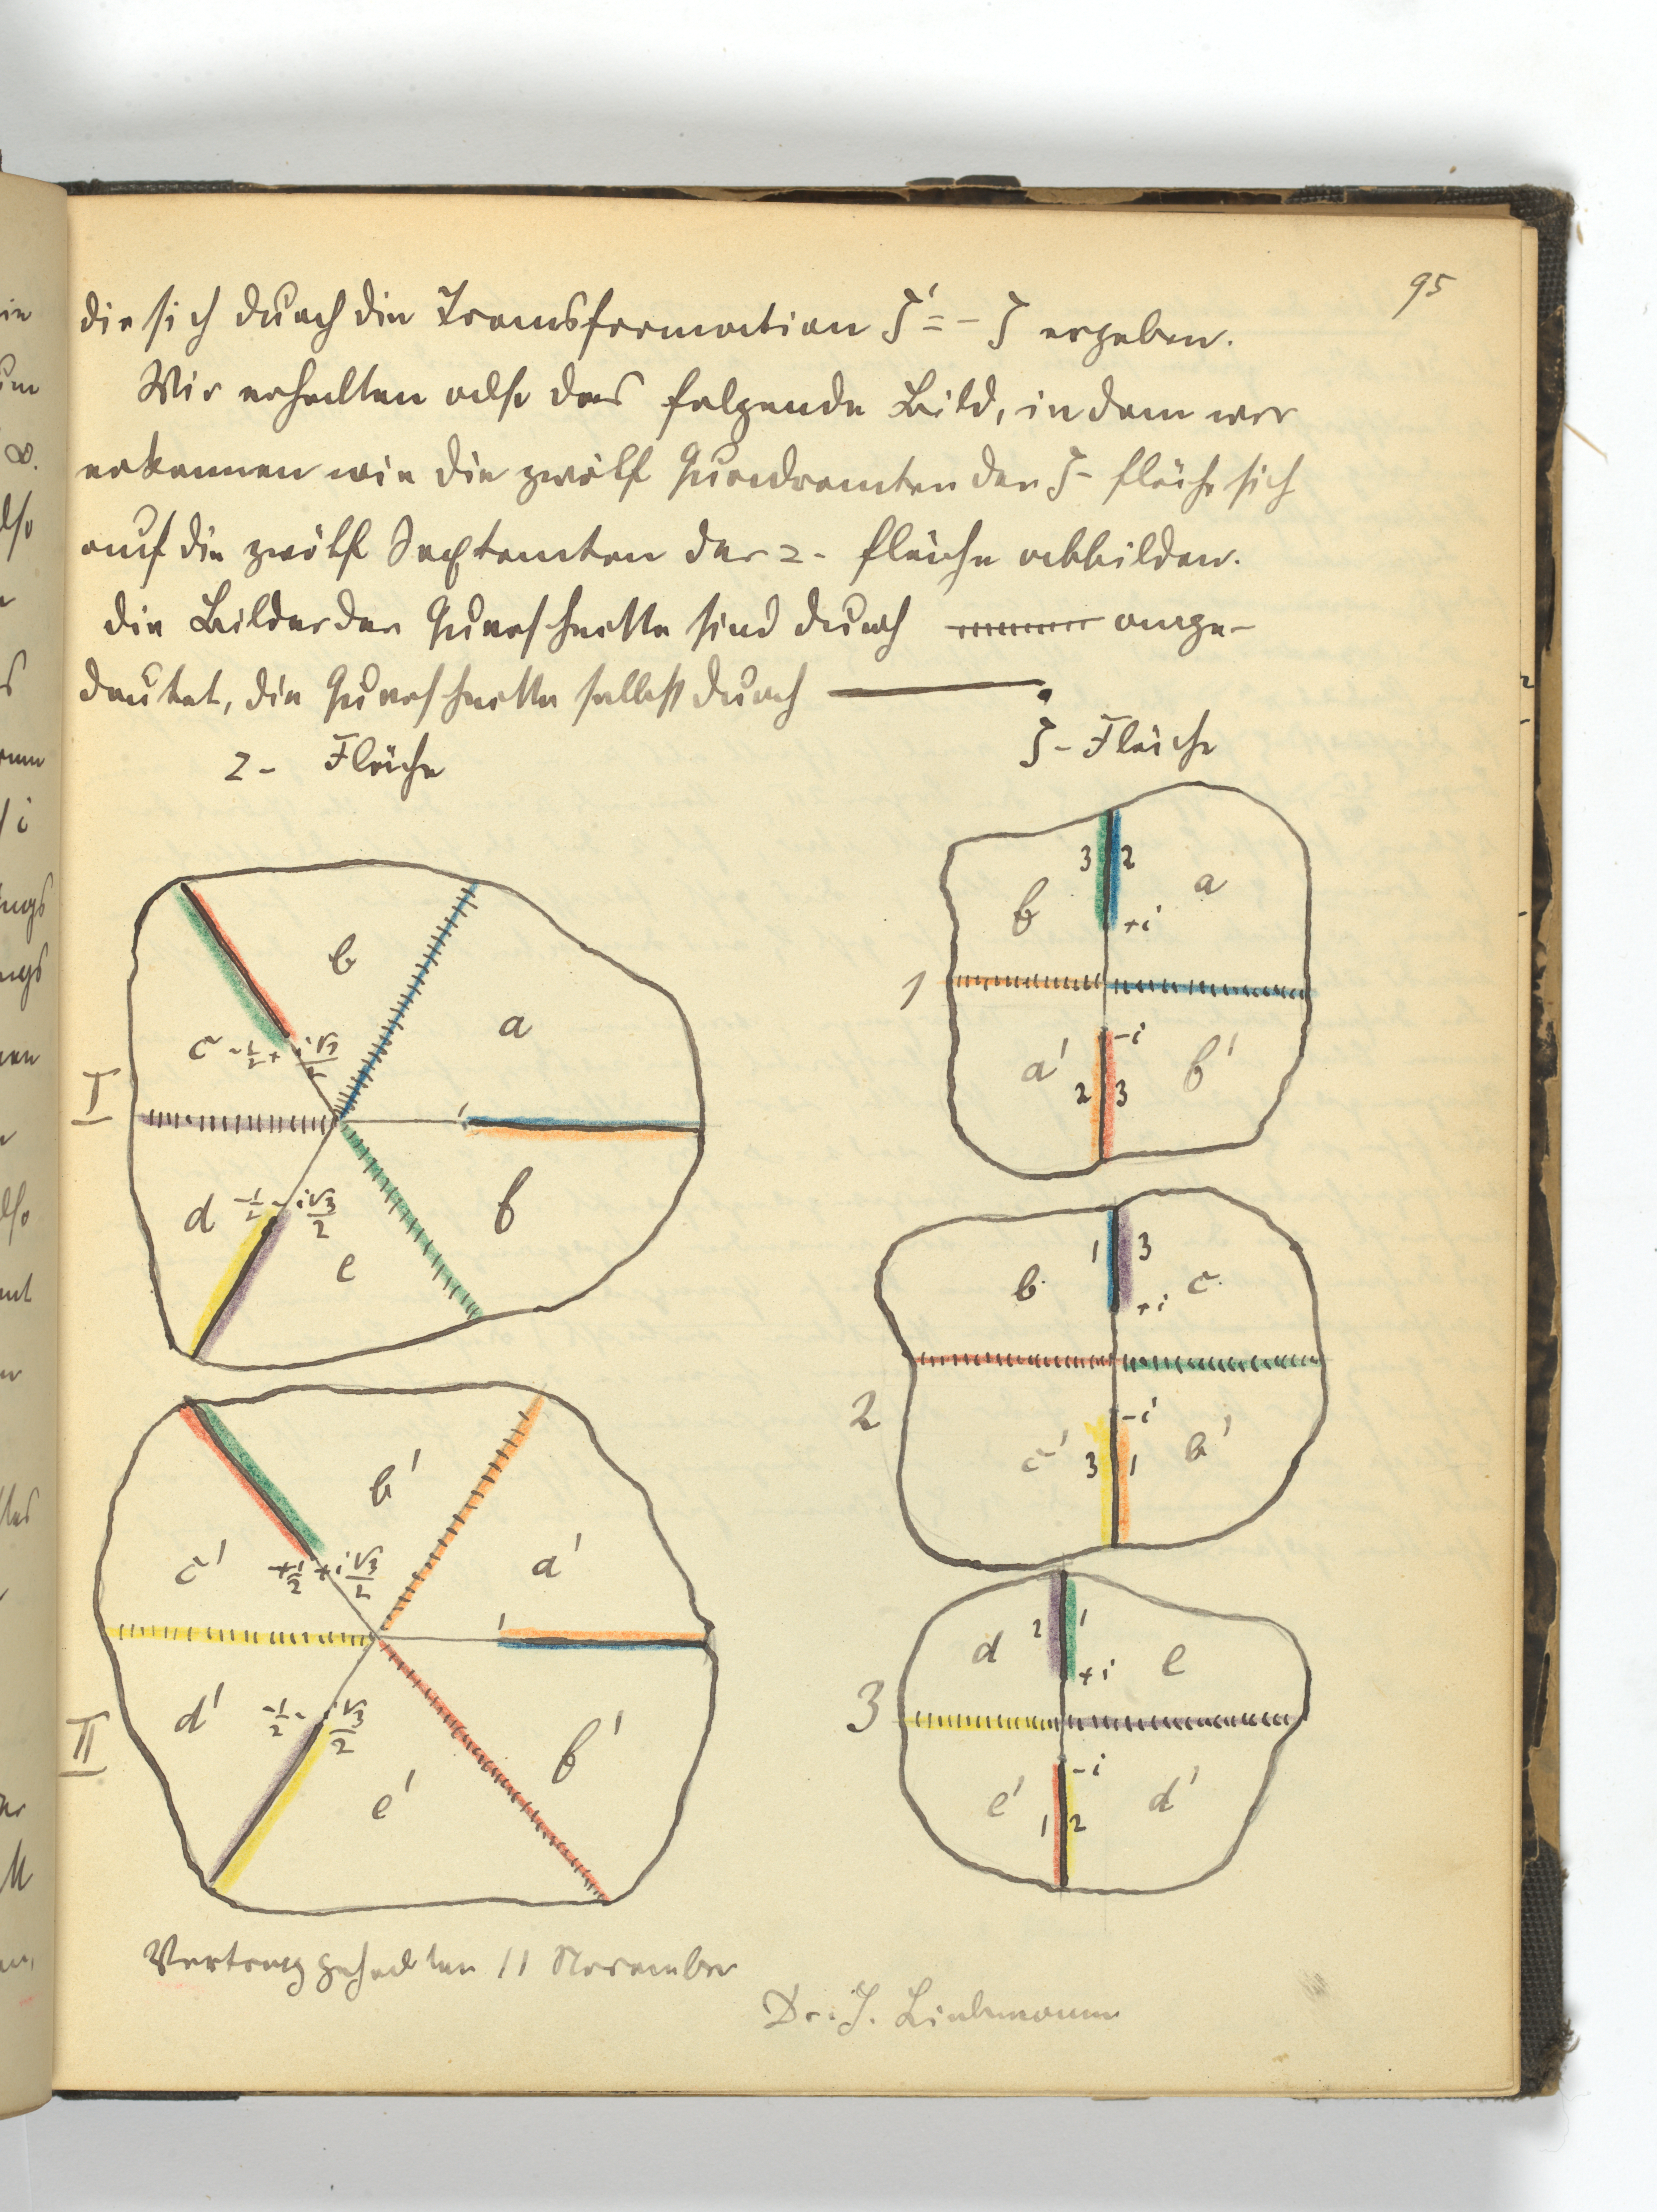 95
die sich durch die Transformation ζ' = - ζ ergeben.
Wir erhalten also das folgende Bild, in dem wir
erkennen wie die zwölf Quadranten der ζ- fläche sich
auf die zwölf Sextanten der z- fläche abbilden.
die Bilder der Querschnitte sind durch ange-
deutet, die Querschnitte selbst durch .
z- Fläche
ζ-Fläche
I
b
a
c -1/2 + i√3/2
1
d -1/2 - i√3/2
e
f
II
b'
a'
c' +1/2 + i√3/2
1
d' -1/2 - i√3/2
e'
f'
1
3 2
f a
+i
-i
a' f'
2 3
2
1 3
b c
+i
-i
c' b'
3 1
3
2 1
d e
+i
-i
e' d'
1 2
Vortrag gehalten 11 November
Dr. J. Liebmann